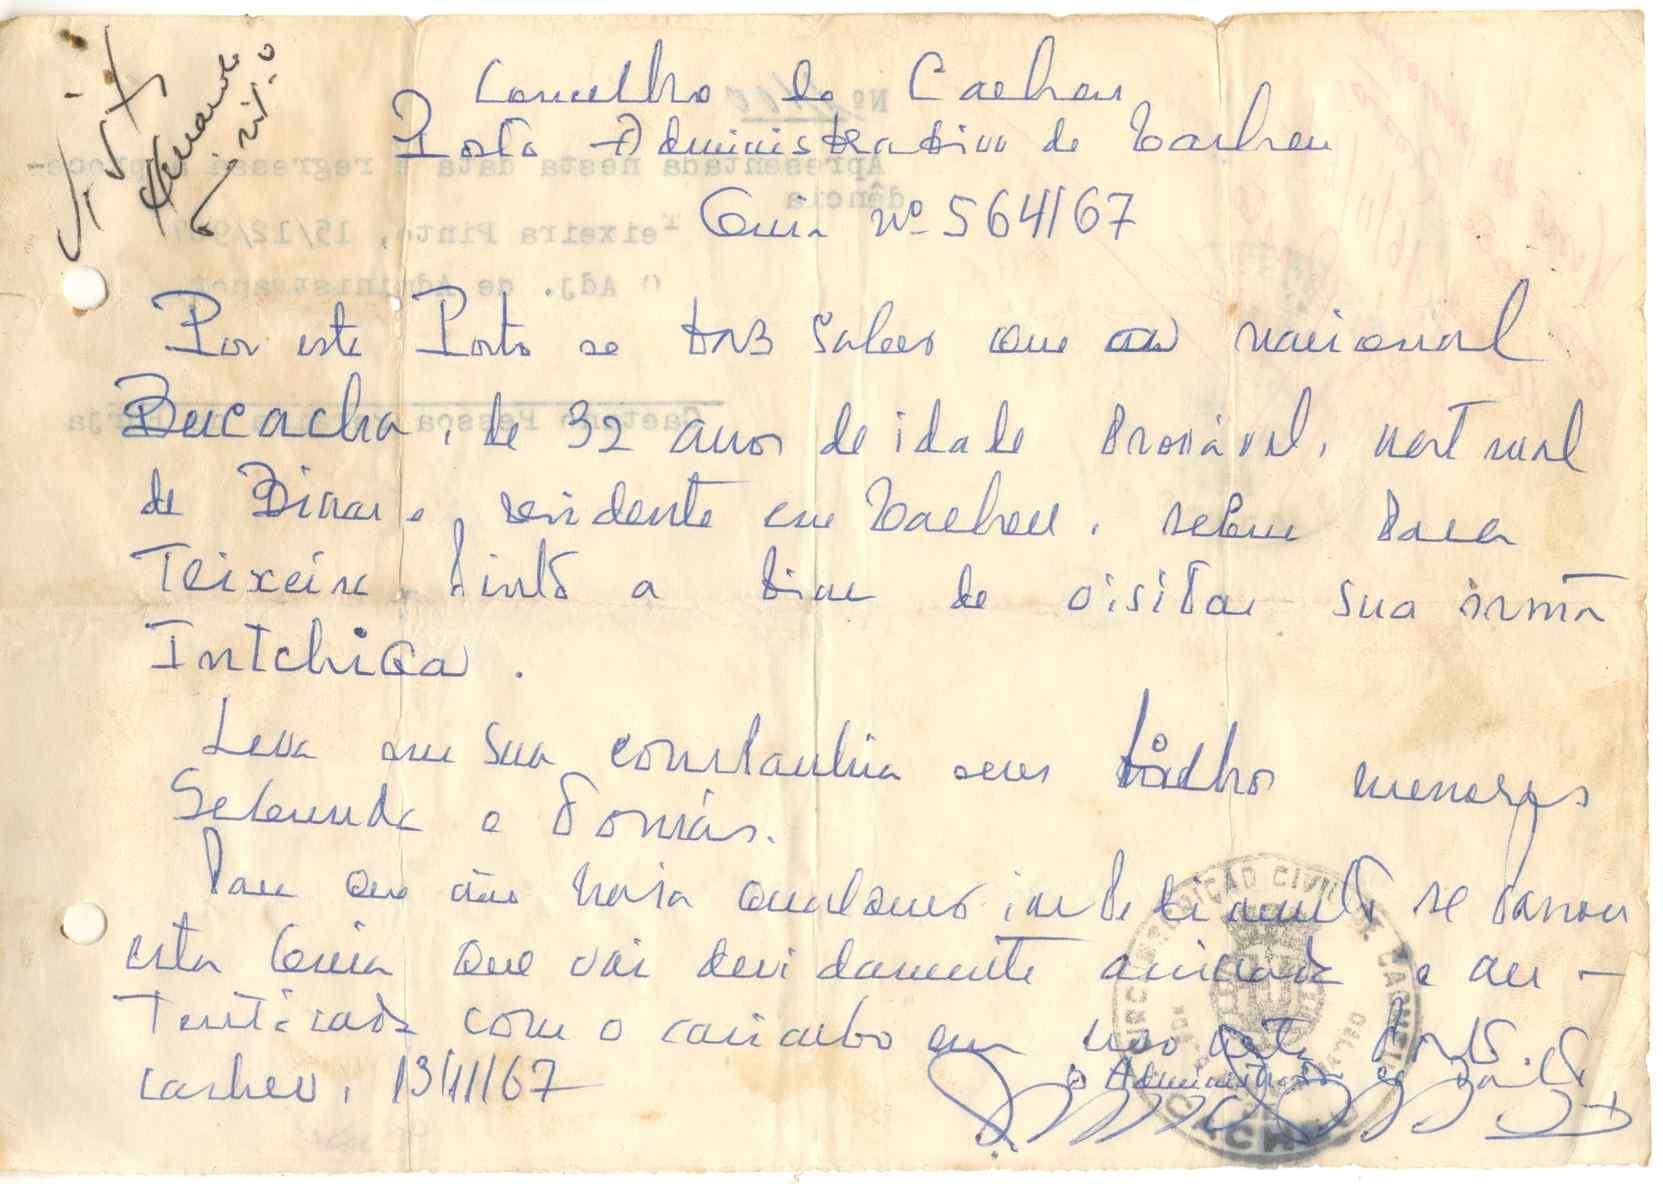 Concelho de Cacheu
Posto Administrativo de Cacheu
Guia nº 564/67
Por este Posto se faz saber que a nacional
Bucacha, de 32 anos de idade provável, natural
de Binar, residente em Cacheu, segue para
Teixeira Pinto a fim de visitar sua irmã
Intchica.
Leva em sua companhia seus filhos menores
Segunda e Tomás.
Para que não haja qualquer impedimento se passou
esta Guia que vai devidamente assinada e au-
tenticada com o carimbo em uso neste Posto.
Cacheu, 13/11/67
o Administrador de Posto
CIRCUNSCRIÇÃO CIVIL DE CACHEU
CACHEU
Nº
Apresentada nesta data e regressa à proce-
dência
Teixeira Pinto, 15/12/967
O Adj. de Administrador
Caetano Pessoa